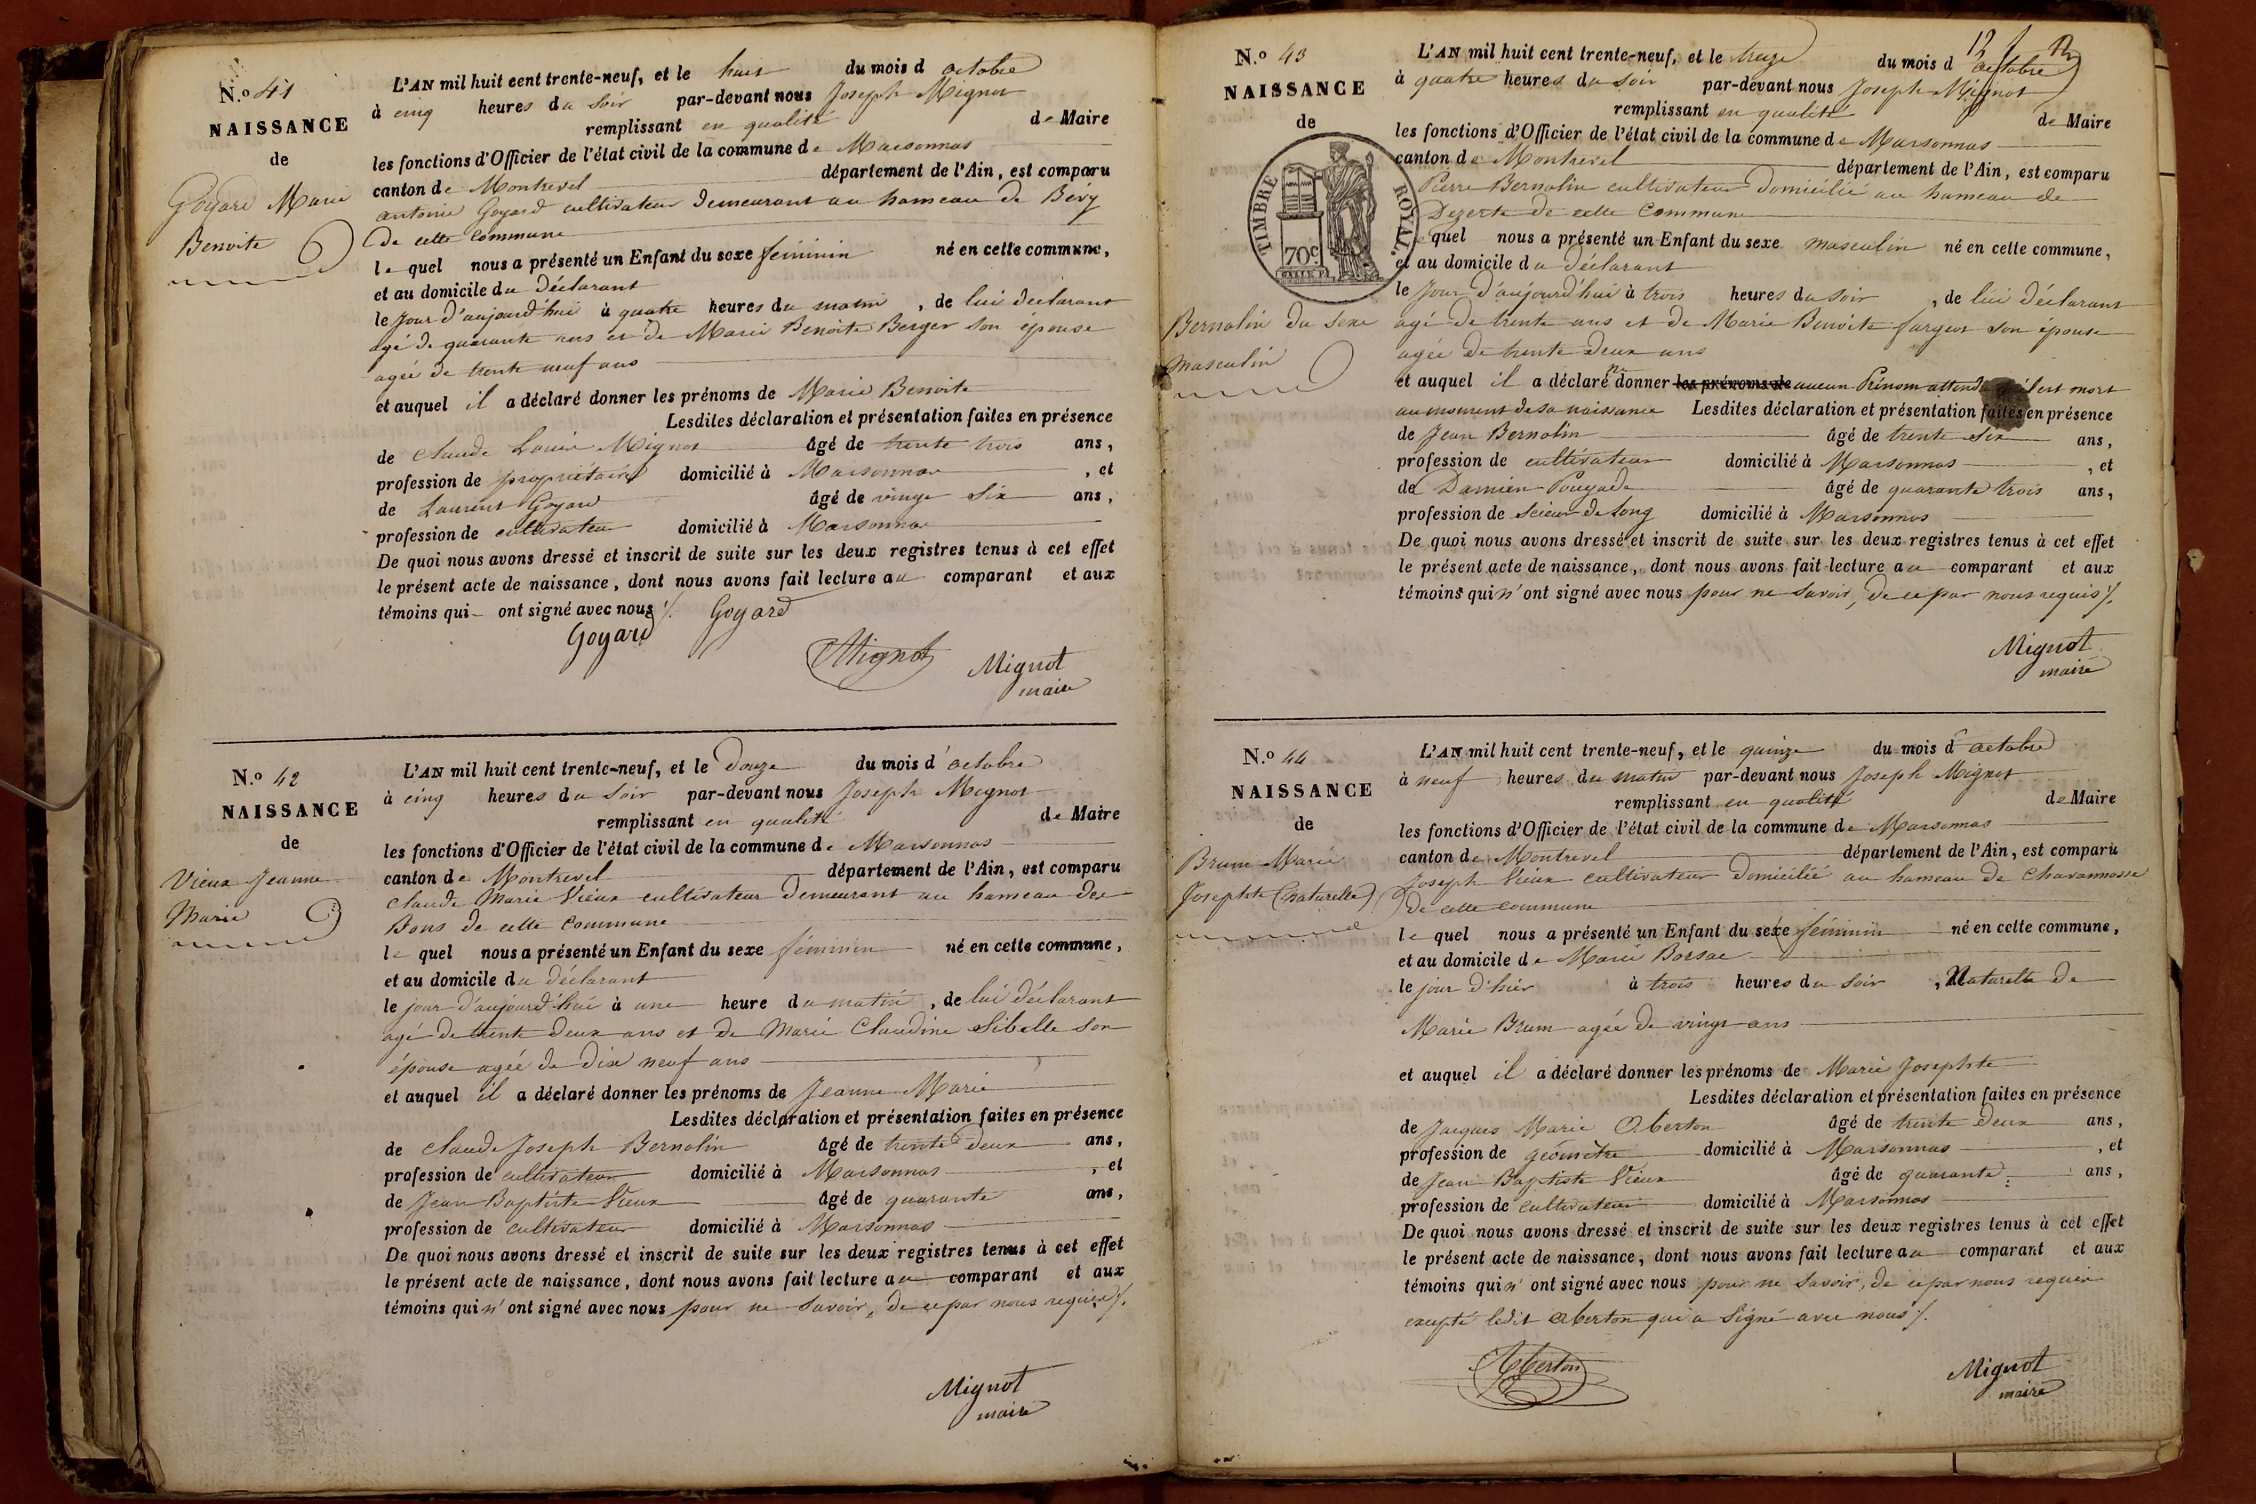 N.o 41
NAISSANCE
de
Goyard Marie
Benoite
L'AN mil huit cent trente-neuf, et le huit du mois d octobre
à cinq heures du soir par-devant nous Joseph Mignot
remplissant en qualité de Maire
les fonctions d'Officier de l'état civil de la commune de Marsonnas
canton de Montrevel département de l'Ain, est comparu
antoine Goyard cultivateur demeurant au hameau de Bévy
de cette commune
le quel nous a présenté un Enfant du sexe féminin né en cette commune,
et au domicile du déclarant
le Jour d'aujourd'hui à quatre heures du matin, de lui déclarant
agé de quarante ans et de Marie Benoite Berger son épouse
agée de trente neuf ans
et auquel il a déclaré donner les prénoms de Marie Benoite
Lesdites déclaration et présentation faites en présence
de claude Louis Mignot âgé de trente trois ans,
profession de propriétaire domicilié à Marsonnas, et
de Laurent Goyard âgé de vingt six ans,
profession de cultivateur domicilié à Marsonnas
De quoi nous avons dressé et inscrit de suite sur les deux registres tenus à cet effet
le présent acte de naissance, dont nous avons fait lecture au comparant et aux
témoins qui ont signé avec nous /. Goyard
Goyard
Mignot Mignot
maire
N.o 42
NAISSANCE
de
Vieux Jeanne
Marie
L'AN mil huit cent trente-neuf, et le Douze du mois d'octobre
à cinq heures du soir par-devant nous Joseph Mignot
remplissant en qualité de Maire
les fonctions d'Officier de l'état civil de la commune de Marsonnas
canton de Montrevel département de l'Ain, est comparu
claude Marie Vieux cultivateur demeurant au hameau des
Bons de cette commune
le quel nous a présenté un Enfant du sexe féminin né en cette commune,
et au domicile du déclarant
le jour d'aujourd'hui à une heure du matin, de lui déclarant
agé de trente deux ans et de Marie Claudine Sibelle son
épouse agée de dix neuf ans
et auquel il a déclaré donner les prénoms de Jeanne Marie
Lesdites déclaration et présentation faites en présence
de claude Joseph Bernolin âgé de trente deux ans,
profession de cultivateur domicilié à Marsonnas, et
de Jean Baptiste Vieux âgé de quarante ans,
profession de cultivateur domicilié à Marsonnas
De quoi nous avons dressé et inscrit de suite sur les deux registres tenus à cet effet
le présent acte de naissance, dont nous avons fait lecture au comparant et aux
témoins qui n'ont signé avec nous pour ne savoir, de ce par nous requis /.
Mignot
maire
12
N.o 43
NAISSANCE
de
TIMBRE ROYAL
70c
Bernolin du sexe
masculin
L'AN mil huit cent trente-neuf, et le treize du mois d octobre
à quatre heures du soir par-devant nous Joseph Mignot
remplissant en qualité de Maire
les fonctions d'Officier de l'état civil de la commune de Marsonnas
canton de Montrevel département de l'Ain, est comparu
Pierre Bernolin cultivateur domicilié au hameau de
Dezerte de cette commune
quel nous a présenté un Enfant du sexe masculin né en cette commune,
et au domicile du déclarant
le Jour d'aujourd'hui à trois heures du soir, de lui déclarant
agé de trente ans et de Marie Benoite fargeot son épouse
agée de trente deux ans
et auquel il a déclaré ne donner les prénoms de aucun Prénom attendu qu'il est mort
au moment de sa naissance Lesdites déclaration et présentation faites en présence
de Jean Bernolin âgé de trente six ans,
profession de cultivateur domicilié à Marsonnas, et
de Damien Pougade âgé de quarante trois ans,
profession de scieur de long domicilié à Marsonnas
De quoi nous avons dressé et inscrit de suite sur les deux registres tenus à cet effet
le présent acte de naissance, dont nous avons fait lecture au comparant et aux
témoins qui n'ont signé avec nous pour ne savoir, de ce par nous requis /.
Mignot
maire
N.o 44
NAISSANCE
de
Brun Marie
Josephte (naturelle)
L'AN mil huit cent trente-neuf, et le quinze du mois d'octobre
à neuf heures du matin par-devant nous Joseph Mignot
remplissant en qualité de Maire
les fonctions d'Officier de l'état civil de la commune de Marsonnas
canton de Montrevel département de l'Ain, est comparu
Joseph Vieux cultivateur domicilié au hameau de Chavannosse
de cette commune
le quel nous a présenté un Enfant du sexe féminin né en cette commune,
et au domicile de Marie Borsae
le jour d'hier à trois heures du soir, Naturelle de
Marie Brun agée de vingt ans
et auquel il a déclaré donner les prénoms de Marie Josephte
Lesdites déclaration et présentation faites en présence
de Jacques Marie Oberton âgé de trente deux ans,
profession de géomètre domicilié à Marsonnas, et
de Jean Baptiste Vieux âgé de quarante ans,
profession de cultivateur domicilié à Marsonnas
De quoi nous avons dressé et inscrit de suite sur les deux registres tenus à cet effet
le présent acte de naissance, dont nous avons fait lecture au comparant et aux
témoins qui n'ont signé avec nous pour ne savoir, de ce par nous requis
excepté ledit Oberton qui a signé avec nous /.
Oberton Mignot
maire